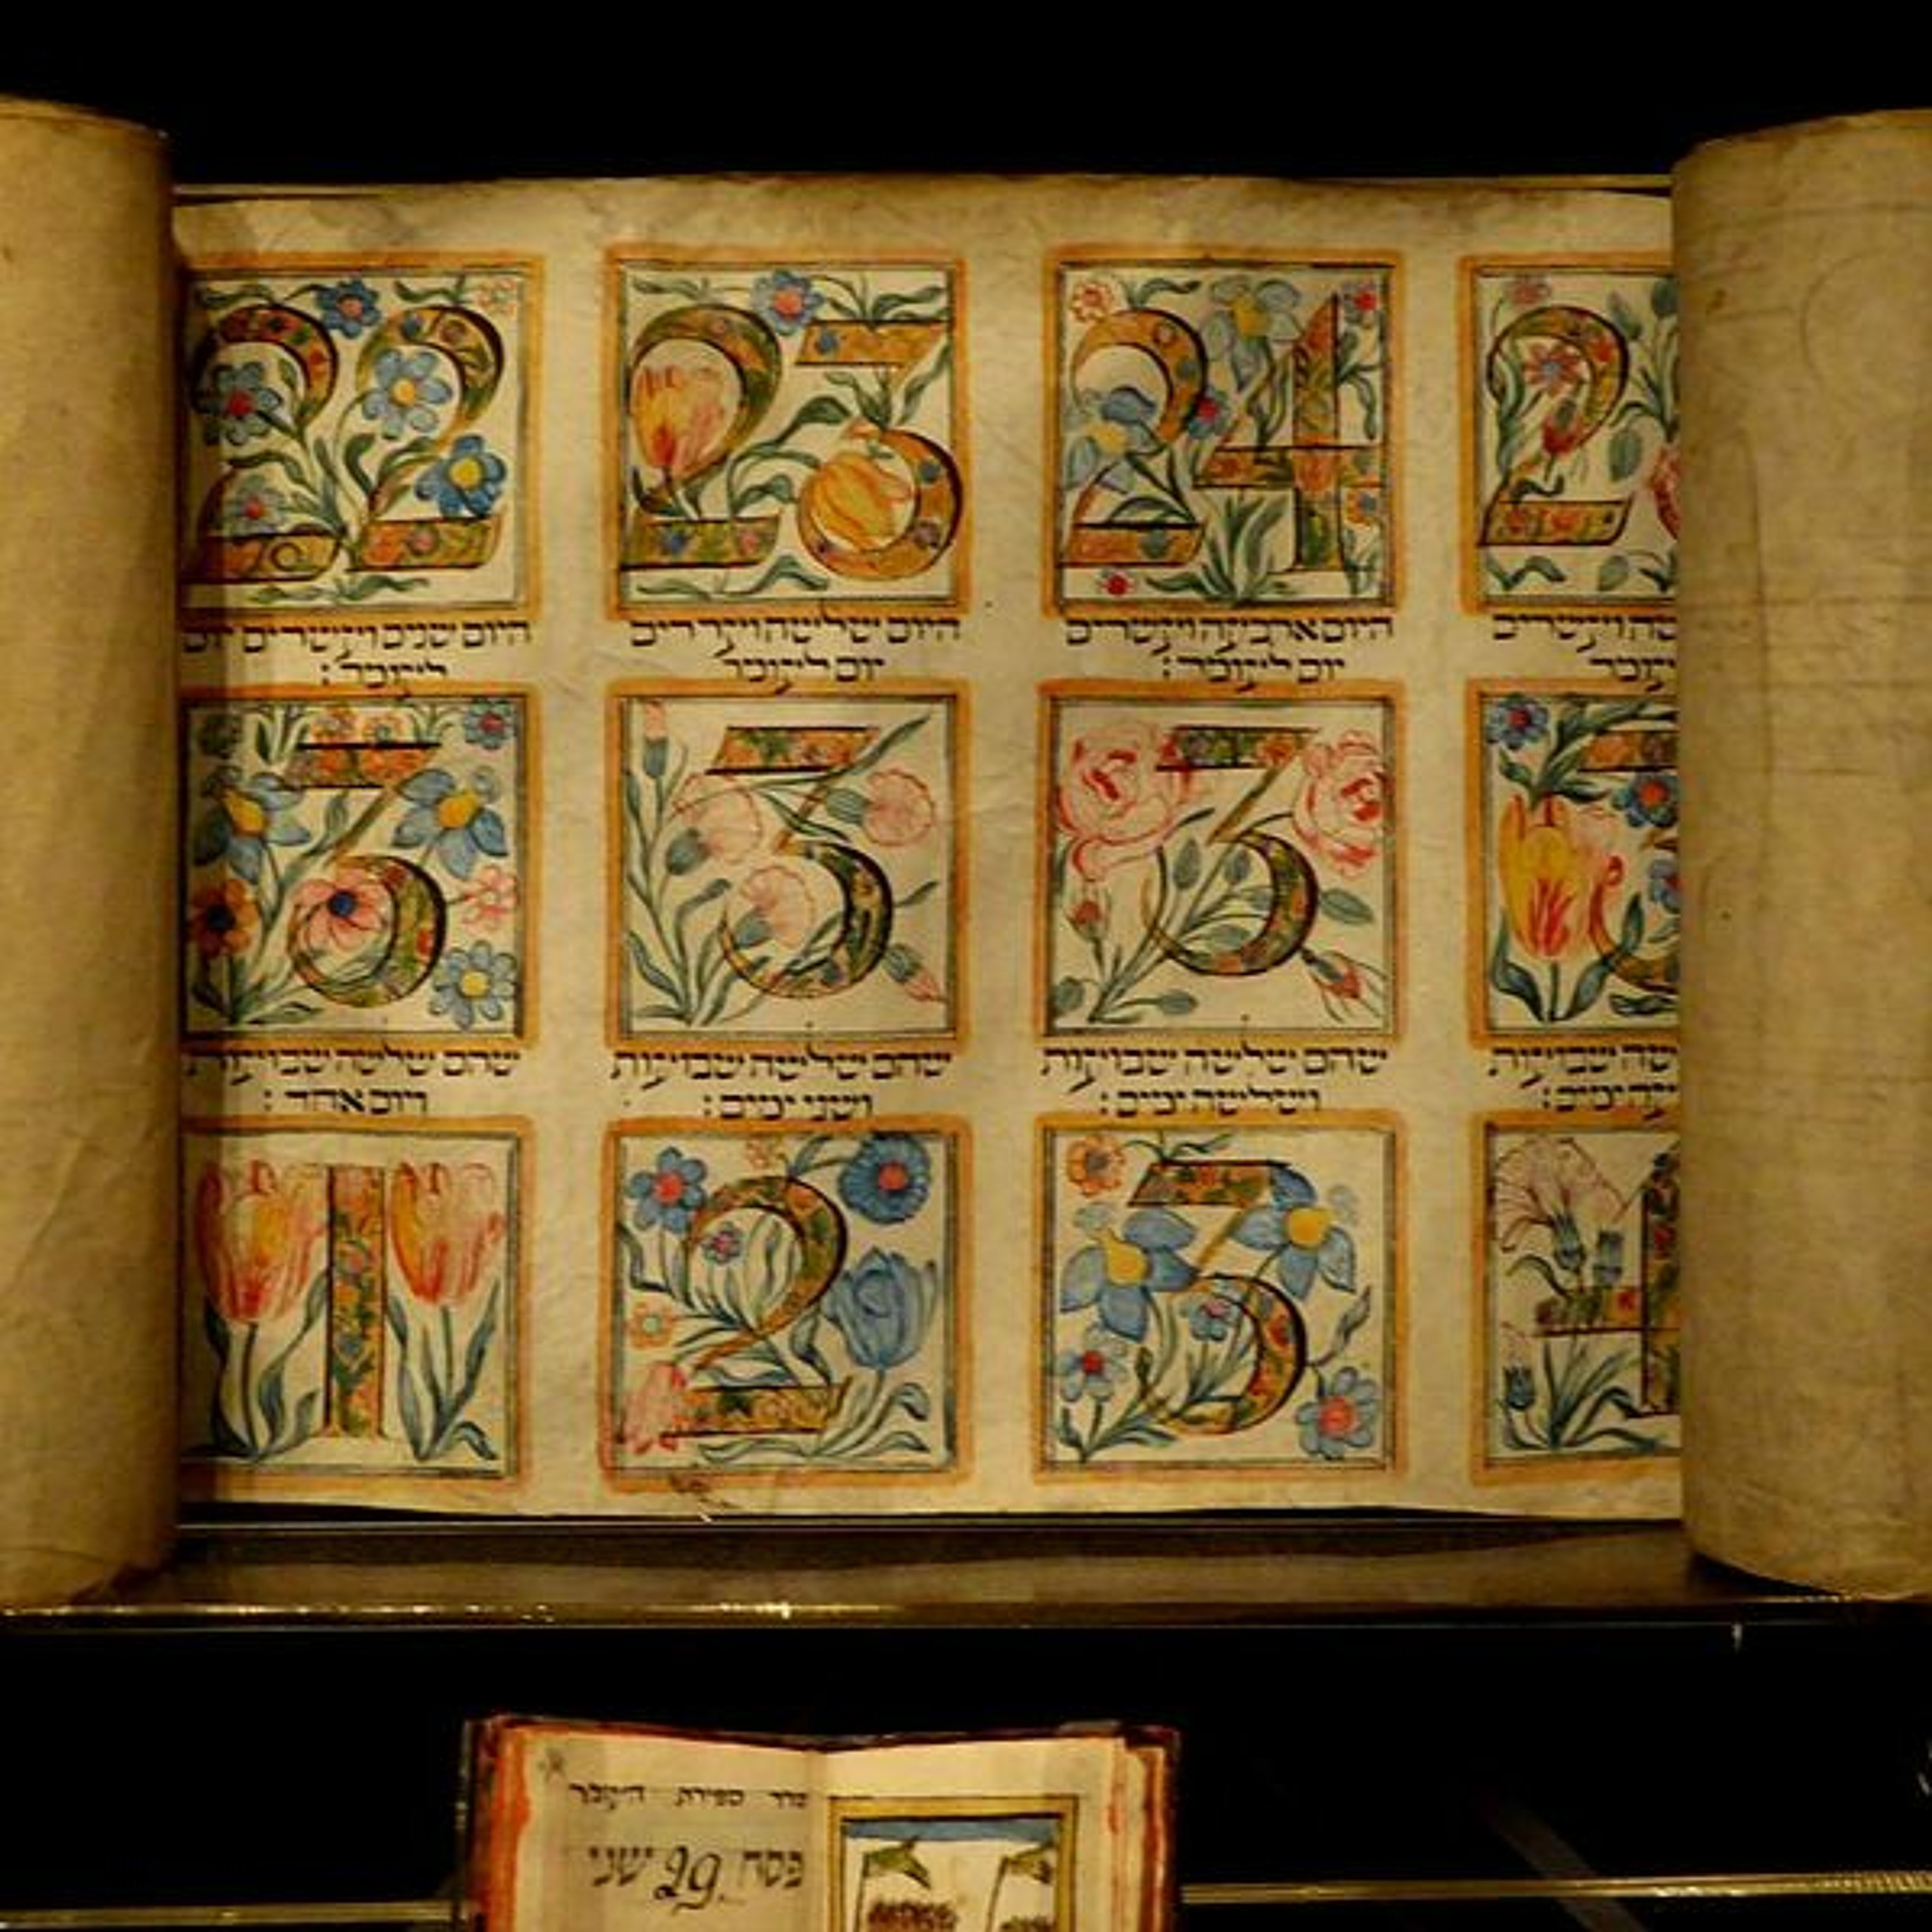 22
23
24
2
היום שנים ועשרים יום
לעומר :
היום שלשה ועשרים
יום לעומר
היום ארבעה ועשרים
יום לעומר :
ועשרים
3
3
3
3
שהם שלשה שבועות
ויום אחד :
שהם שלשה שבועות
ושני ימים :
שהם שלשה שבועות
ושלשה ימים :
שבועות
ימים :
1
2
3
4
סדר ספירת העומר
פסח 29 שני